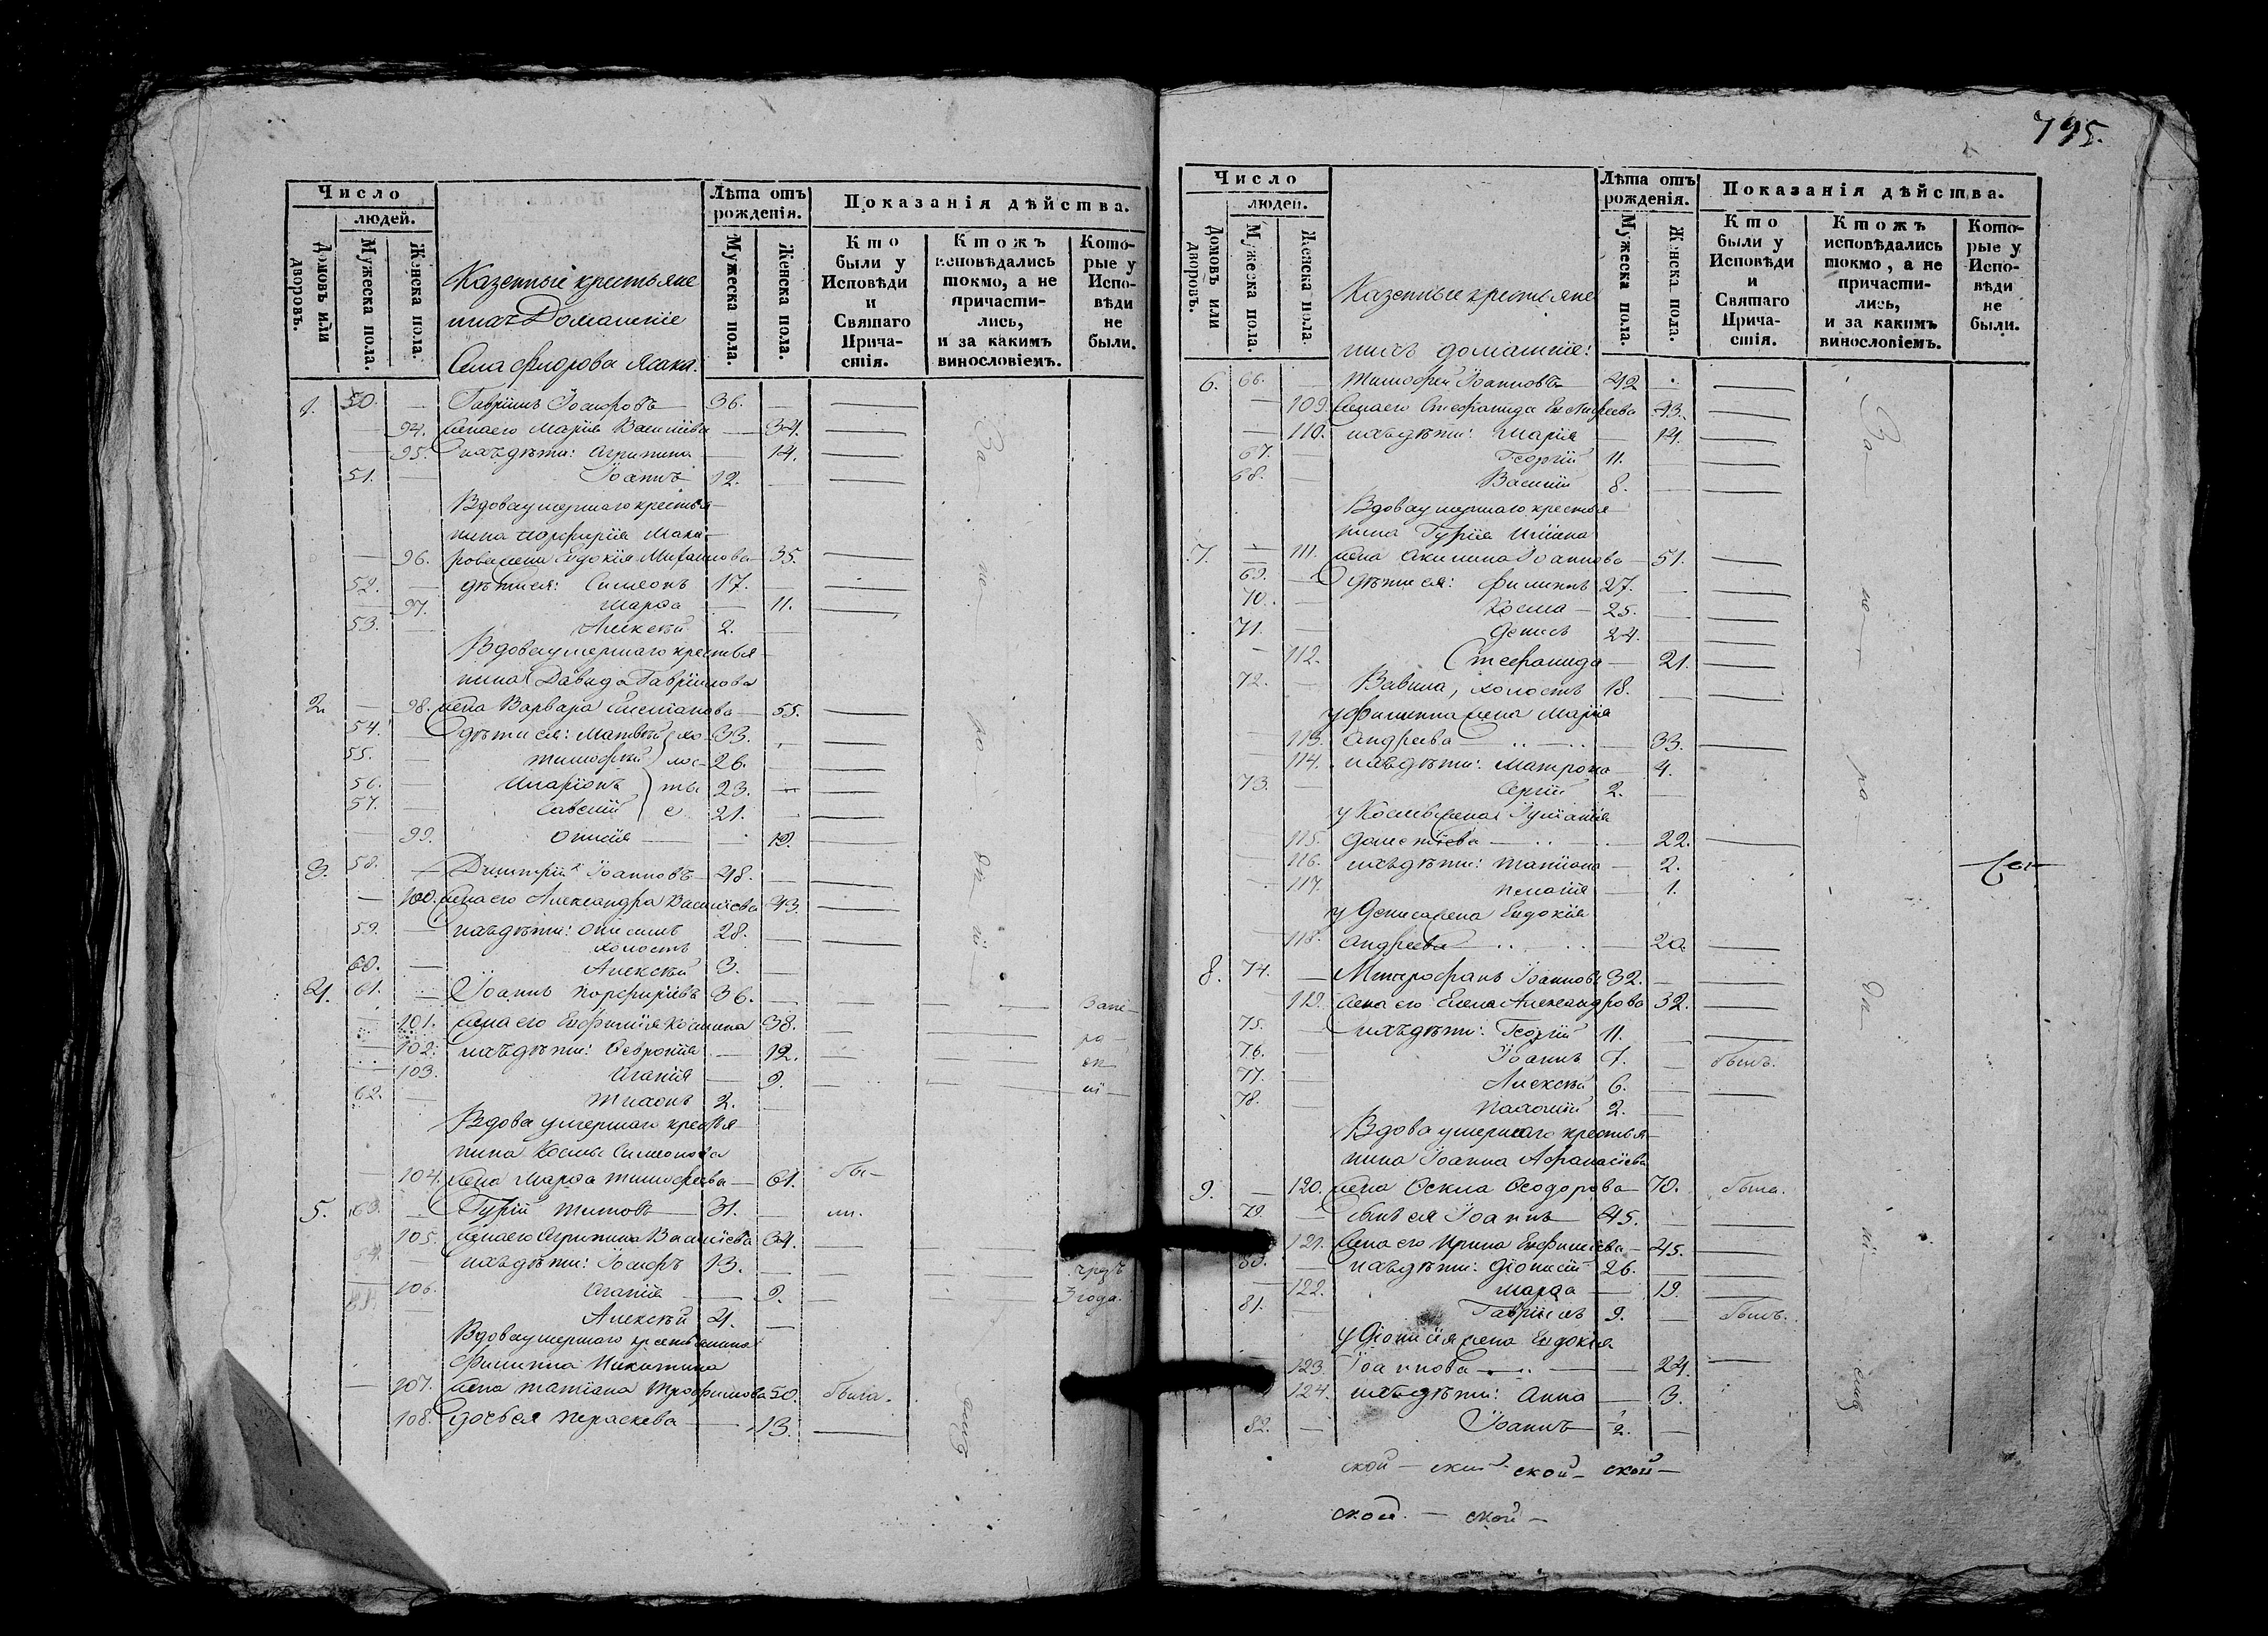 Число
людей.
Домовъ или дворовъ.
Мужеска пола.
Женска пола.
Казенные крестьяне
ихъ Домашніе
Села Флорова Ясака.
Лѣта отъ рожденія.
Мужеска пола.
Женска пола.
Показанія дѣйства.
Кто были у Исповѣди и Святаго Причастія.
Ктожъ исповѣдались токмо, а не причастились, и за какимъ винословіемъ.
Которые у Исповѣди не были.
1. 50. — Гавріилъ Іосифовъ — 36. —
— 94. жена его Марія Васильева — 34.
— 95. ихъ дѣти: Агрипина — 14.
51. — Іоаннъ 12. —
Вдова умершаго крестья-
нина Порфирія Мака-
— 96. рова жена Евдокія Михайлова — 35.
52. — дѣти ея: Симеонъ 17. —
— 97. Марѳа — 11.
53. — Алексѣй 2. —
Вдова умершаго крестья-
нина Давида Гавріилова
2. — 98. жена Варвара — 55.
54. — дѣти ея: Матвѣй хо- 33.
55. — Тимоѳей лос- 26. —
56. — Иларіонъ ты 23. —
57. — Савелій е 21. —
— 99. — 19.
3. 58. — Димитрій Іоанновъ — 48. —
— 100. жена его Александра Васильева 43.
59. — ихъ дѣти: Онисимъ 28. —
холостъ
60. — Алексѣй 3. —
4. 61. — Іоаннъ Порфирьевъ 36. —
— 101. жена его Евфимія Космина 38.
— 102. ихъ дѣти: Ѳевронія — 12.
— 103. Агапія — 9.
62. — Тихонъ 2. —
Вдова умершаго крестья-
нина Космы Симеонова
— 104. жена Марѳа Тимоѳеева — 61. бы-
5. 63. — Гурій Титовъ — 31. —
— 105. жена его Агрипина Васильева 34.
64. — ихъ дѣти: Іосифъ 13. — чрезъ
— 106. Агапія — 9. 3 года.
— Алексѣй 4. —
Вдова умершаго крестьянина
Филиппа Никитина
— 107. жена Татіана Трофимова 50. была.
108. дочь ея Параскева — 13.
795.
Число
людей.
Домовъ или дворовъ.
Мужеска пола.
Женска пола.
Казенные крестьяне
ихъ домашніе:
Лѣта отъ рожденія.
Мужеска пола.
Женска пола.
Показанія дѣйства.
Кто были у Исповѣди и Святаго Причастія.
Ктожъ исповѣдались токмо, а не причастились, и за какимъ винословіемъ.
Которые у Исповѣди не были.
6. 66. — Тимоѳей Іоанновъ 42 —
— 109. жена его Стефанида 43.
— 110. ихъ дѣти: Марія — 14.
67. — Георгій 11. —
68. — Василій 8. —
Вдова умершаго крестья-
нина Гурія
7. — 111. жена Акилина Іоаннова — 51.
69. — дѣти ея: Филиппъ 27. —
70. — Косма — 25. —
71. — Денисъ 24. —
— 112. Стефанида — 21.
72. — Вавила, холостъ 18. —
у Филиппа жена Марія
— 113. Андреева — 33.
— 114. ихъ дѣти: Матрона — 4.
73. — Сергій 2. —
у Космы жена Іуліанія
115. — 22.
— 116. ихъ дѣти: Татіана — 2.
— 117. Пелагія — 1.
у Дениса жена Евдокія
— 118. Андреева — 20.
8. 74. — Митрофанъ Іоанновъ 32. —
119. жена его Елена Александрова 32.
75. — ихъ дѣти: Георгій 11. —
76. — Іоаннъ 7. — былъ.
77. — Алексѣй 6. —
78. — Пахомій 2. —
Вдова умершаго крестья-
нина Іоанна Аѳанасіева
9. — 120. жена Ѳекла Ѳеодорова — 70. была.
79. — сынъ ея Іоаннъ — 45. —
121. жена его Ирина Евфиміева — 45.
80. — ихъ дѣти: Діонисій 26. —
— 122. Марѳа — 19.
81. — Гавріилъ 9. — былъ.
у Діонисія жена Евдокія
123. Іоаннова — 24.
124. ихъ дѣти: Анна — 3.
82. — Іоаннъ — 1/2. —
ской — ской — ской — ской —
ской. — ской —